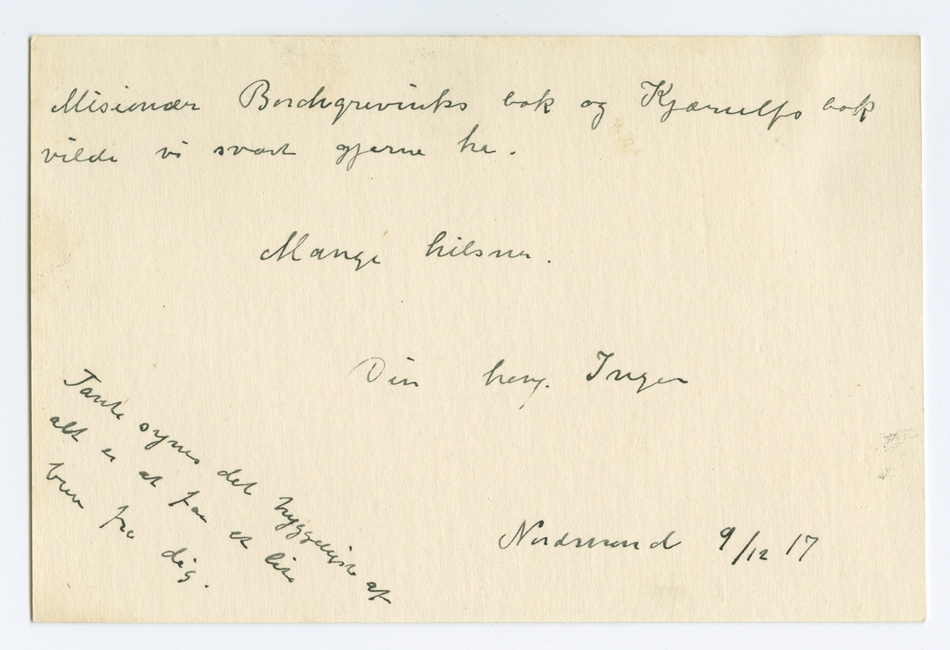 Misionær Borchgrevinks bok og Kjærulfs bok
vilde vi svært gjerne ha.
Mange hilsner.
Din heng. Inger
Tante synes det hyggeligste af
alt er at faa et lite
brev fra dig.
Nordstrand 9/12 17